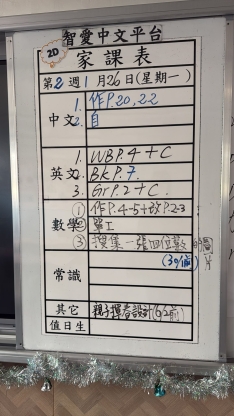 智愛中文平台
20
家課表
第2週1月26日(星期一)
中文
1. 作P.20,22
2. 自
英文
1. WBP.4+C
2. BKP.7.
3. GrP.2+C.
數學
① 作P.4-5+改P.2-3
② 單工
③ 搜集一張四位數的圖片
(30/1前)
常識
其它
親子揮春設計(6/2前)
值日生